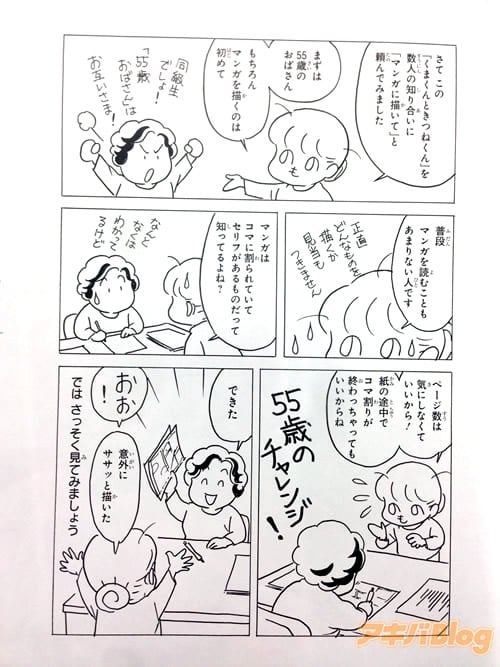 さて この
「くまくんときつねくん」を
数人の知り合いに
「マンガに描いて」と
頼んでみました
まずは
55歳の
おばさん
もちろん
マンガを描くのは
初めて
同級生
でしょ！
「55歳
おばさん」は
お互いさま！
普段
マンガを読むことも
あまりない人です
正直
どんなものを
描くか
見当も
つきません
マンガは
コマに割られていて
セリフがあるものだって
知ってるよね？
なんと
なくは
わかって
るけど
ページ数は
気にしなくて
いいから！
紙の途中で
コマ割りが
終わっちゃっても
いいからね
55歳の
チャレンジ！
できた
おお！
意外に
ササッと描いた
では さっそく見てみましょう
アキバBlog